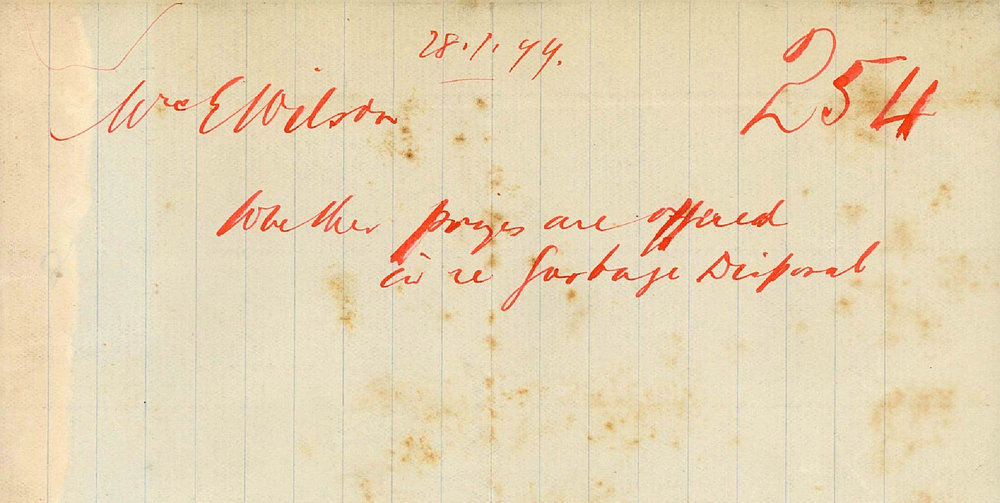 28.1.99.
254
E Wilson
Whether prizes are offered
in re Garbage Disposal